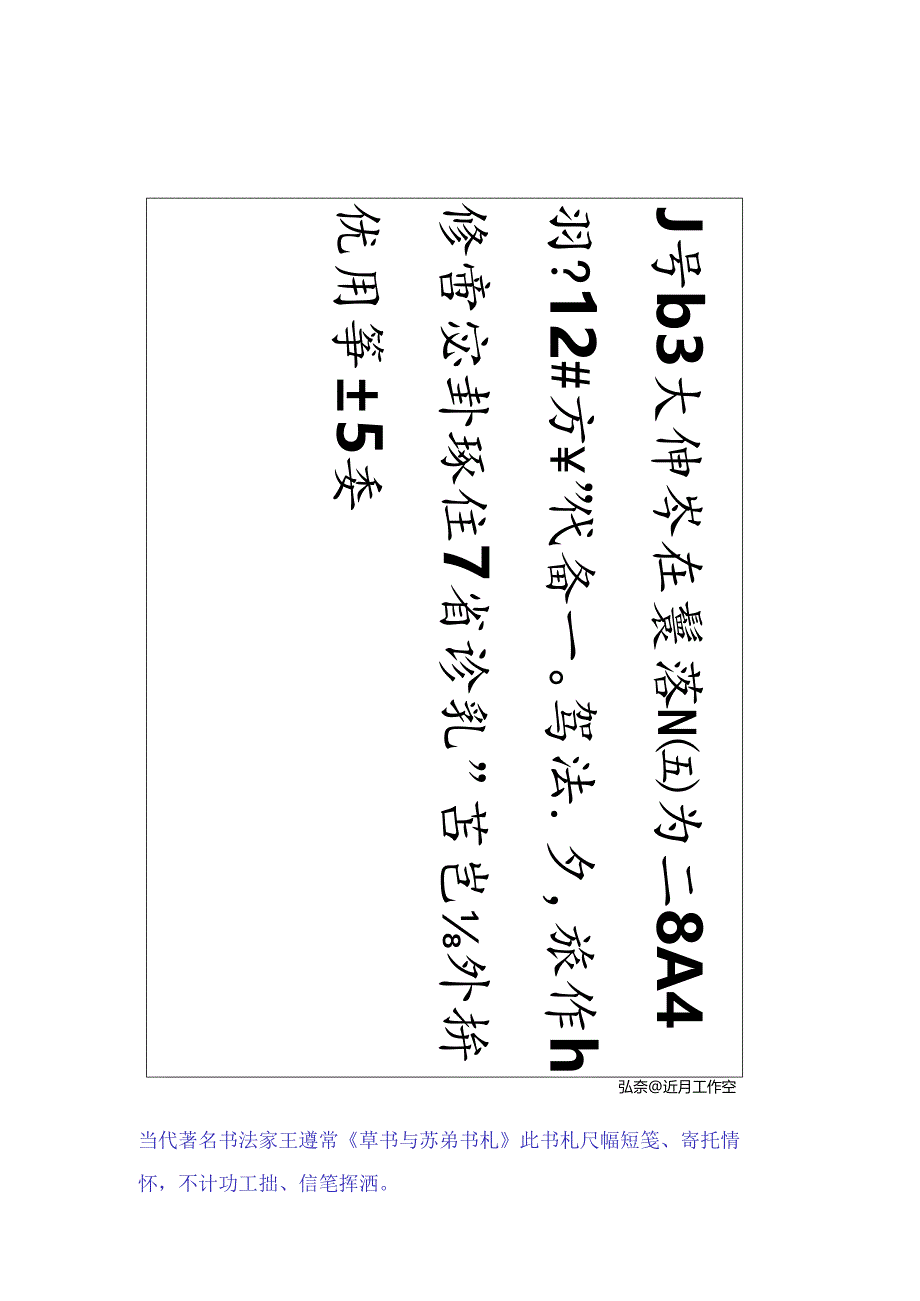 J号b3大伸岑在鬟落N㈤为二8A4
羽?12#方¥”代备一。驾法.夕,旅作h
修雷宓卦琢住7省诊乳”苦岂⅛外拚
优用筝±5委
弘奈@近月工作空
当代著名书法家王遵常《草书与苏弟书札》此书札尺幅短笺、寄托情
怀，不计功工拙、信笔挥洒。